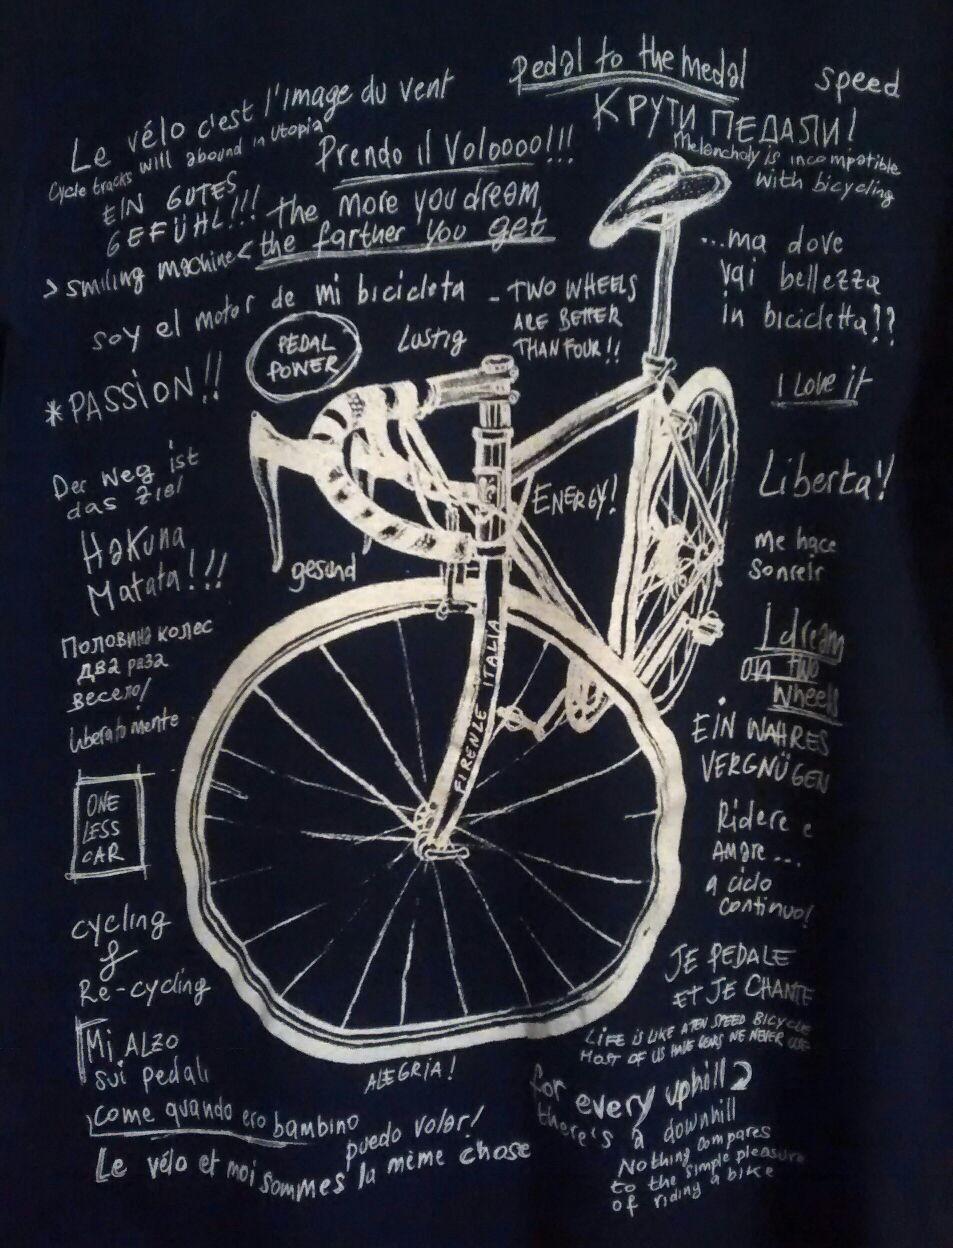 Pedal to the medal
speed
Le vélo c'est l'image du vent
КРУТИ ПЕДАЛИ!
Cycle tracks will abound in Utopia
Prendo il Voloooo!!!
Melancholy is incompatible
with bicycling
EIN GUTES
GEFÜHL!!!
the more you dream
the farther you get
>smiling machine<
...ma dove
vai bellezza
in bicicletta??
soy el motor de mi bicicleta
- TWO WHEELS
ARE BETTER
THAN FOUR!!
PEDAL
POWER
Lustig
*PASSION!!
I Love it
Der Weg ist
das Ziel
Liberta!
ENERGY!
Hakuna
Matata!!!
gesund
me hace
sonreir
Половина колес
два раза
весело!
I dream
on two
wheels
FIRENZE ITALIA
liberato mente
EIN WAHRES
VERGNÜGEN
ONE
LESS
CAR
Ridere e
Amare...
a ciclo
continuo!
cycling
&
Re-cycling
JE PEDALE
ET JE CHANTE
Mi ALZO
sui pedali
come quando ero bambino
LIFE IS LIKE A TEN SPEED BICYCLE
MOST OF US HAVE GEARS WE NEVER USE
ALEGRIA!
for every uphill
there's a downhill
puedo volar!
Le vélo et moi sommes la même chose
Nothing compares
to the simple pleasure
of riding a bike